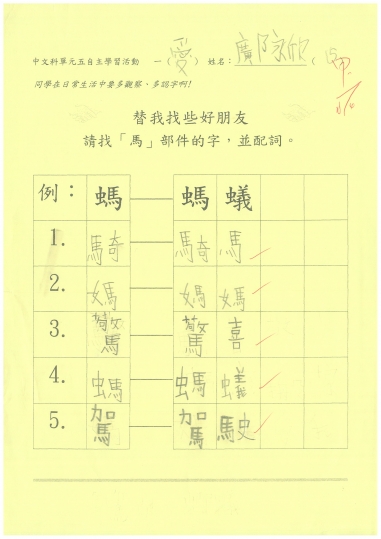 中文科單元五自主學習活動 一（愛） 姓名：鄺詠欣（15）
甲
同學在日常生活中要多觀察，多認字啊!
替我找些好朋友
請找「馬」部件的字，並配詞。
例： 螞 螞蟻
1. 騎 騎馬
2. 媽 媽媽
3. 驚 驚喜
4. 螞 螞蟻
5. 駕 駕駛